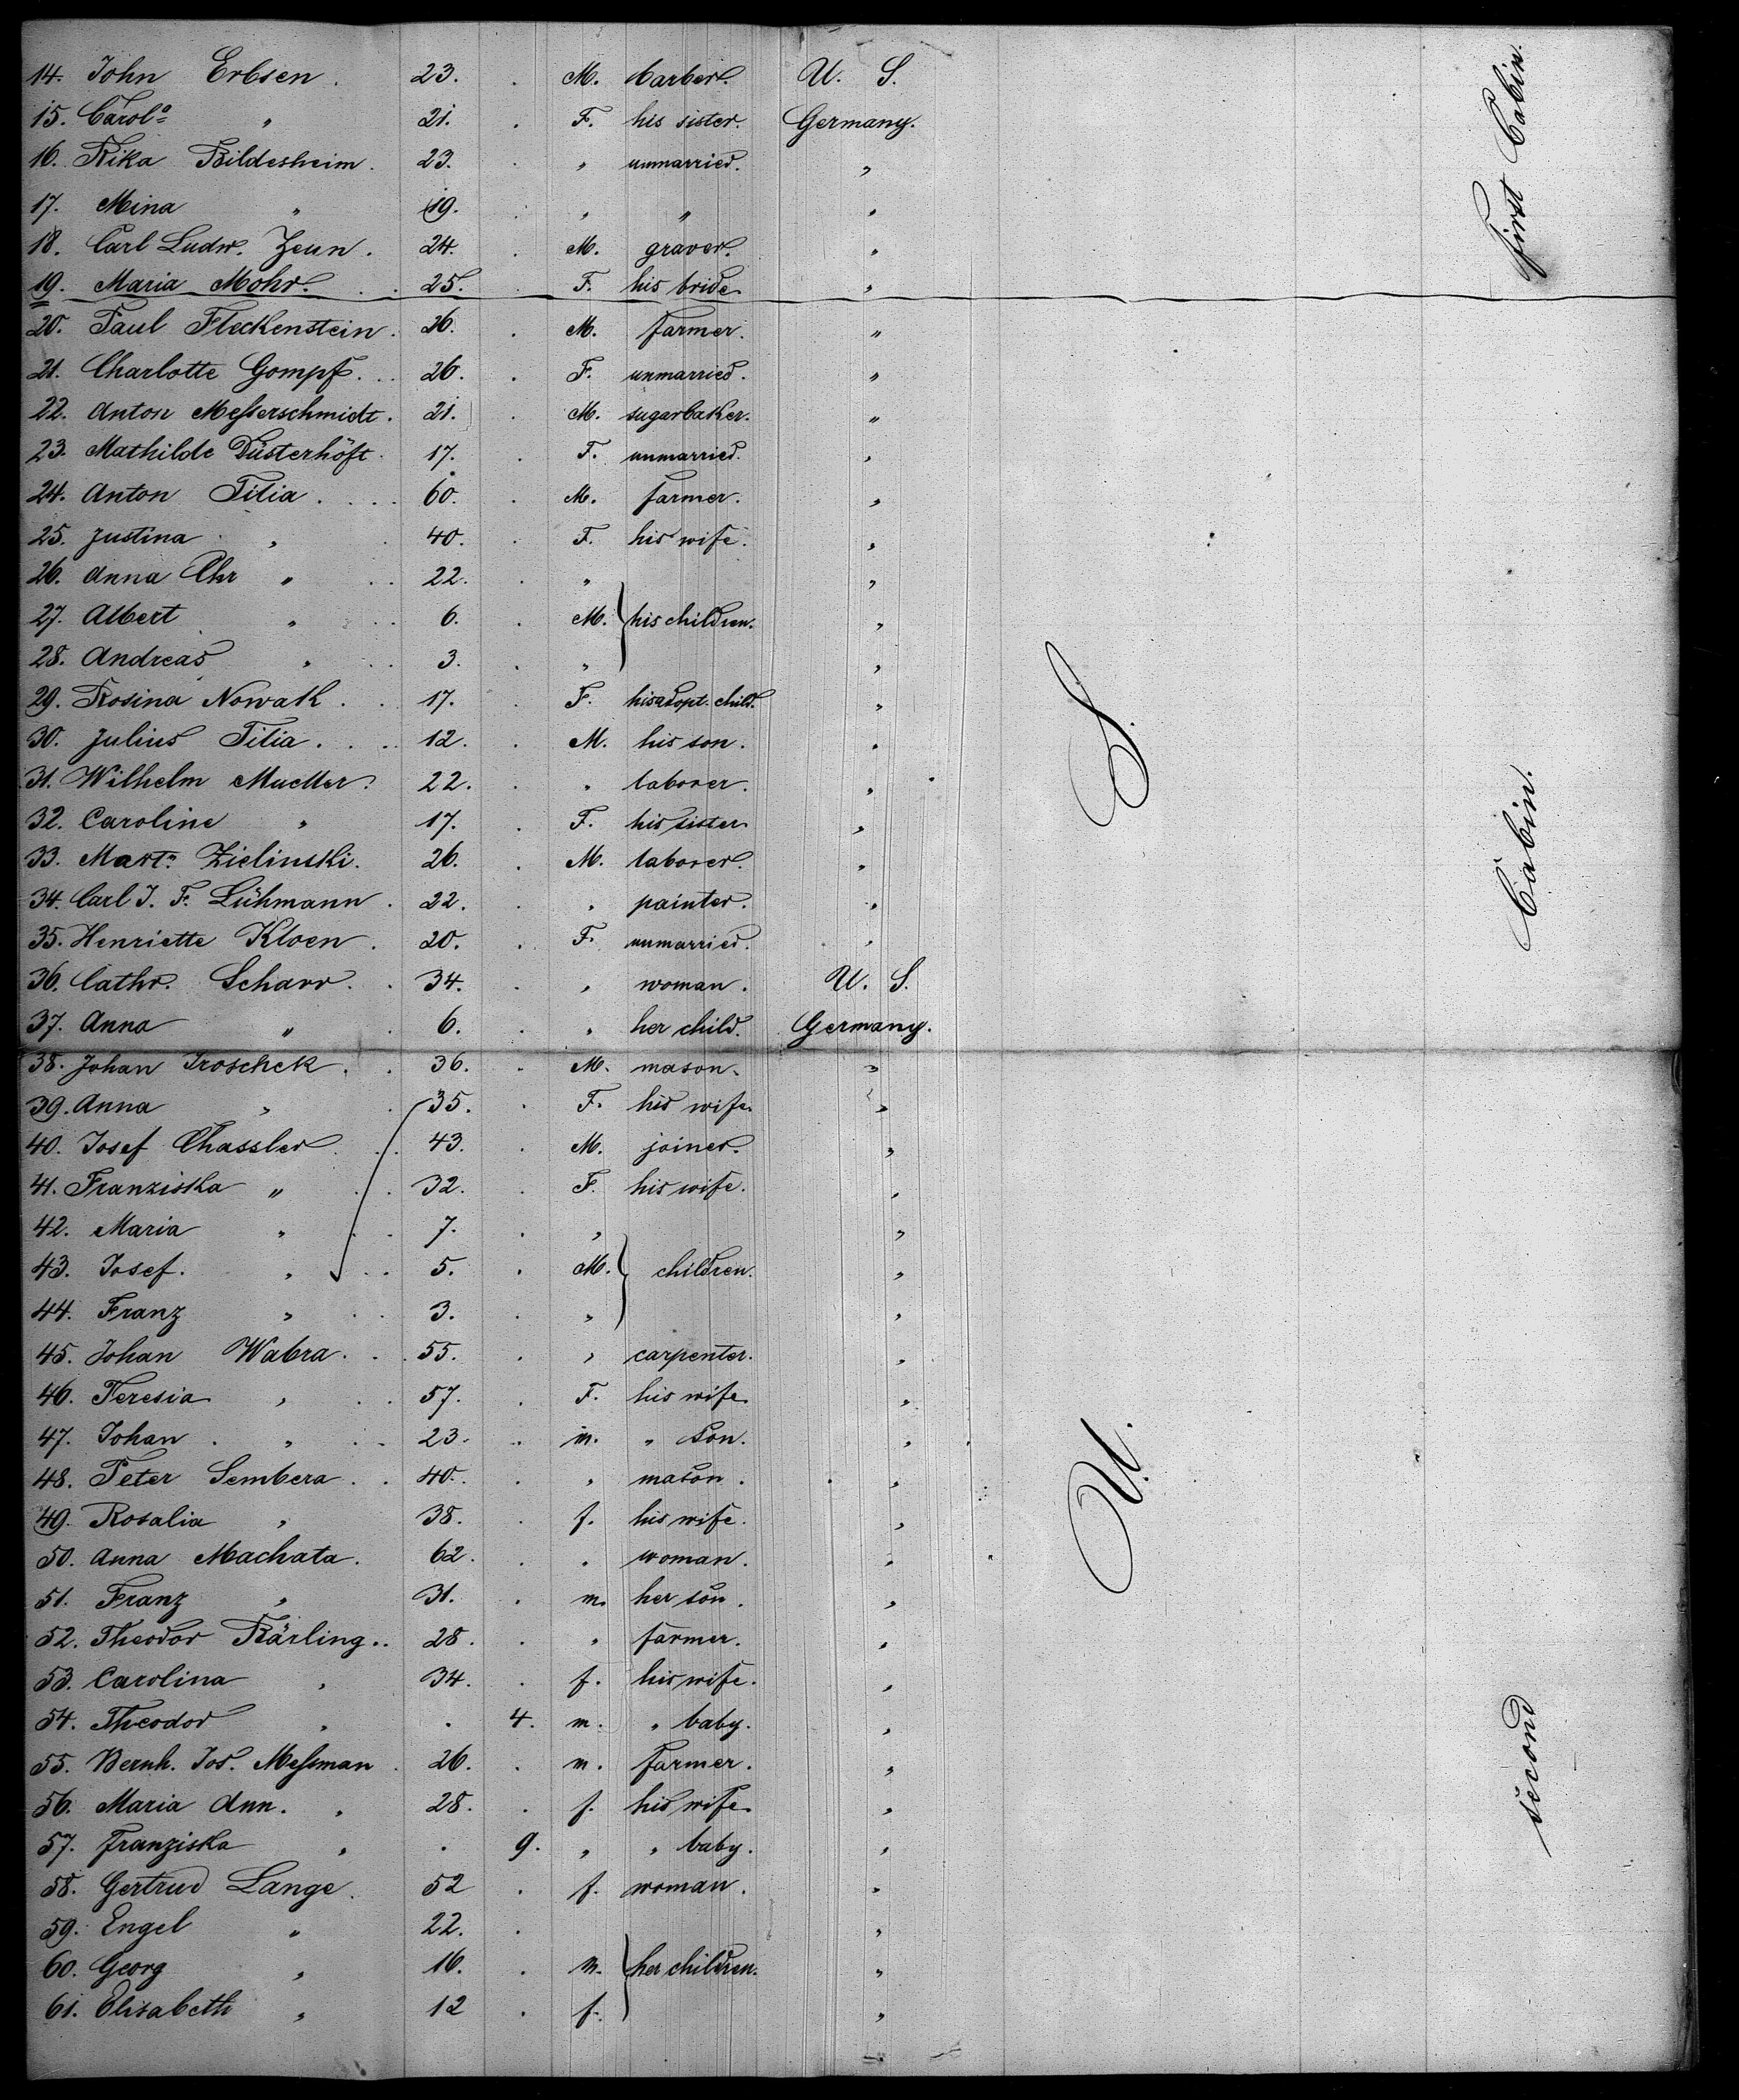 14. John Erbsen. 23. M. barber. U. S.
15. Carol.ª " 21. F. his sister. Germany.
16. Rika Bildesheim. 23. " unmarried. "
17. Mina " 19. " " "
18. Carl Ludw. Zeun. 24. M. graver. "
19. Maria Mohr. 25. F. his bride "
20. Paul Fleckenstein. 26. M. farmer. "
21. Charlotte Gompf. 26. F. unmarried. "
22. Anton Messerschmidt. 21. M. sugarbaker. "
23. Mathilde Düsterhöft. 17. F. unmarried. "
24. Anton Titia. 60. M. farmer. "
25. Justina " 40. F. his wife. "
26. Anna Chr " 22. " "
27. Albert " 6. M. his children. "
28. Andreas " 3. " "
29. Rosina Nowak. 17. F. his adopt. child. "
30. Julius Titia. 12. M. his son. "
31. Wilhelm Mueller. 22. " laborer. "
32. Caroline " 17. F. his sister "
33. Mart.ⁿ Zielinski. 26. M. laborer. "
34. Carl J. F. Lühmann. 22. " painter. "
35. Henriette Kloen. 20. F. unmarried. "
36. Cathr. Scharr. 34. " woman. U. S.
37. Anna " 6. " her child. Germany.
38. Johan Iroschek. 36. M. mason. "
39. Anna " 35. F. his wife "
40. Josef Chassler 43. M. joiner. "
41. Franziska " 32. F. his wife. "
42. Maria " 7. " "
43. Josef. " 5. M. children. "
44. Franz " 3. " "
45. Johan Wabra. 55. " carpenter. "
46. Teresia " 57. F. his wife "
47. Johan " 23. m. " son. "
48. Peter Sembera. 40. " mason. "
49. Rosalia " 38. f. his wife. "
50. Anna Machata. 62. " woman. "
51. Franz " 31. m. her son. "
52. Theodor Bärling. 28. " farmer. "
53. Carolina " 34. f. his wife. "
54. Theodor " . 4. m. " baby. "
55. Bernh. Jos. Messman. 26. m. farmer. "
56. Maria Ann. " 28. f. his wife "
57. Franziska " . 9. " " baby. "
58. Gertrud Lange. 52 f. woman. "
59. Engel " 22. "
60. Georg " 16. m. her children. "
61. Elisabeth " 12 f. "
U. S.
First Cabin.
second Cabin.